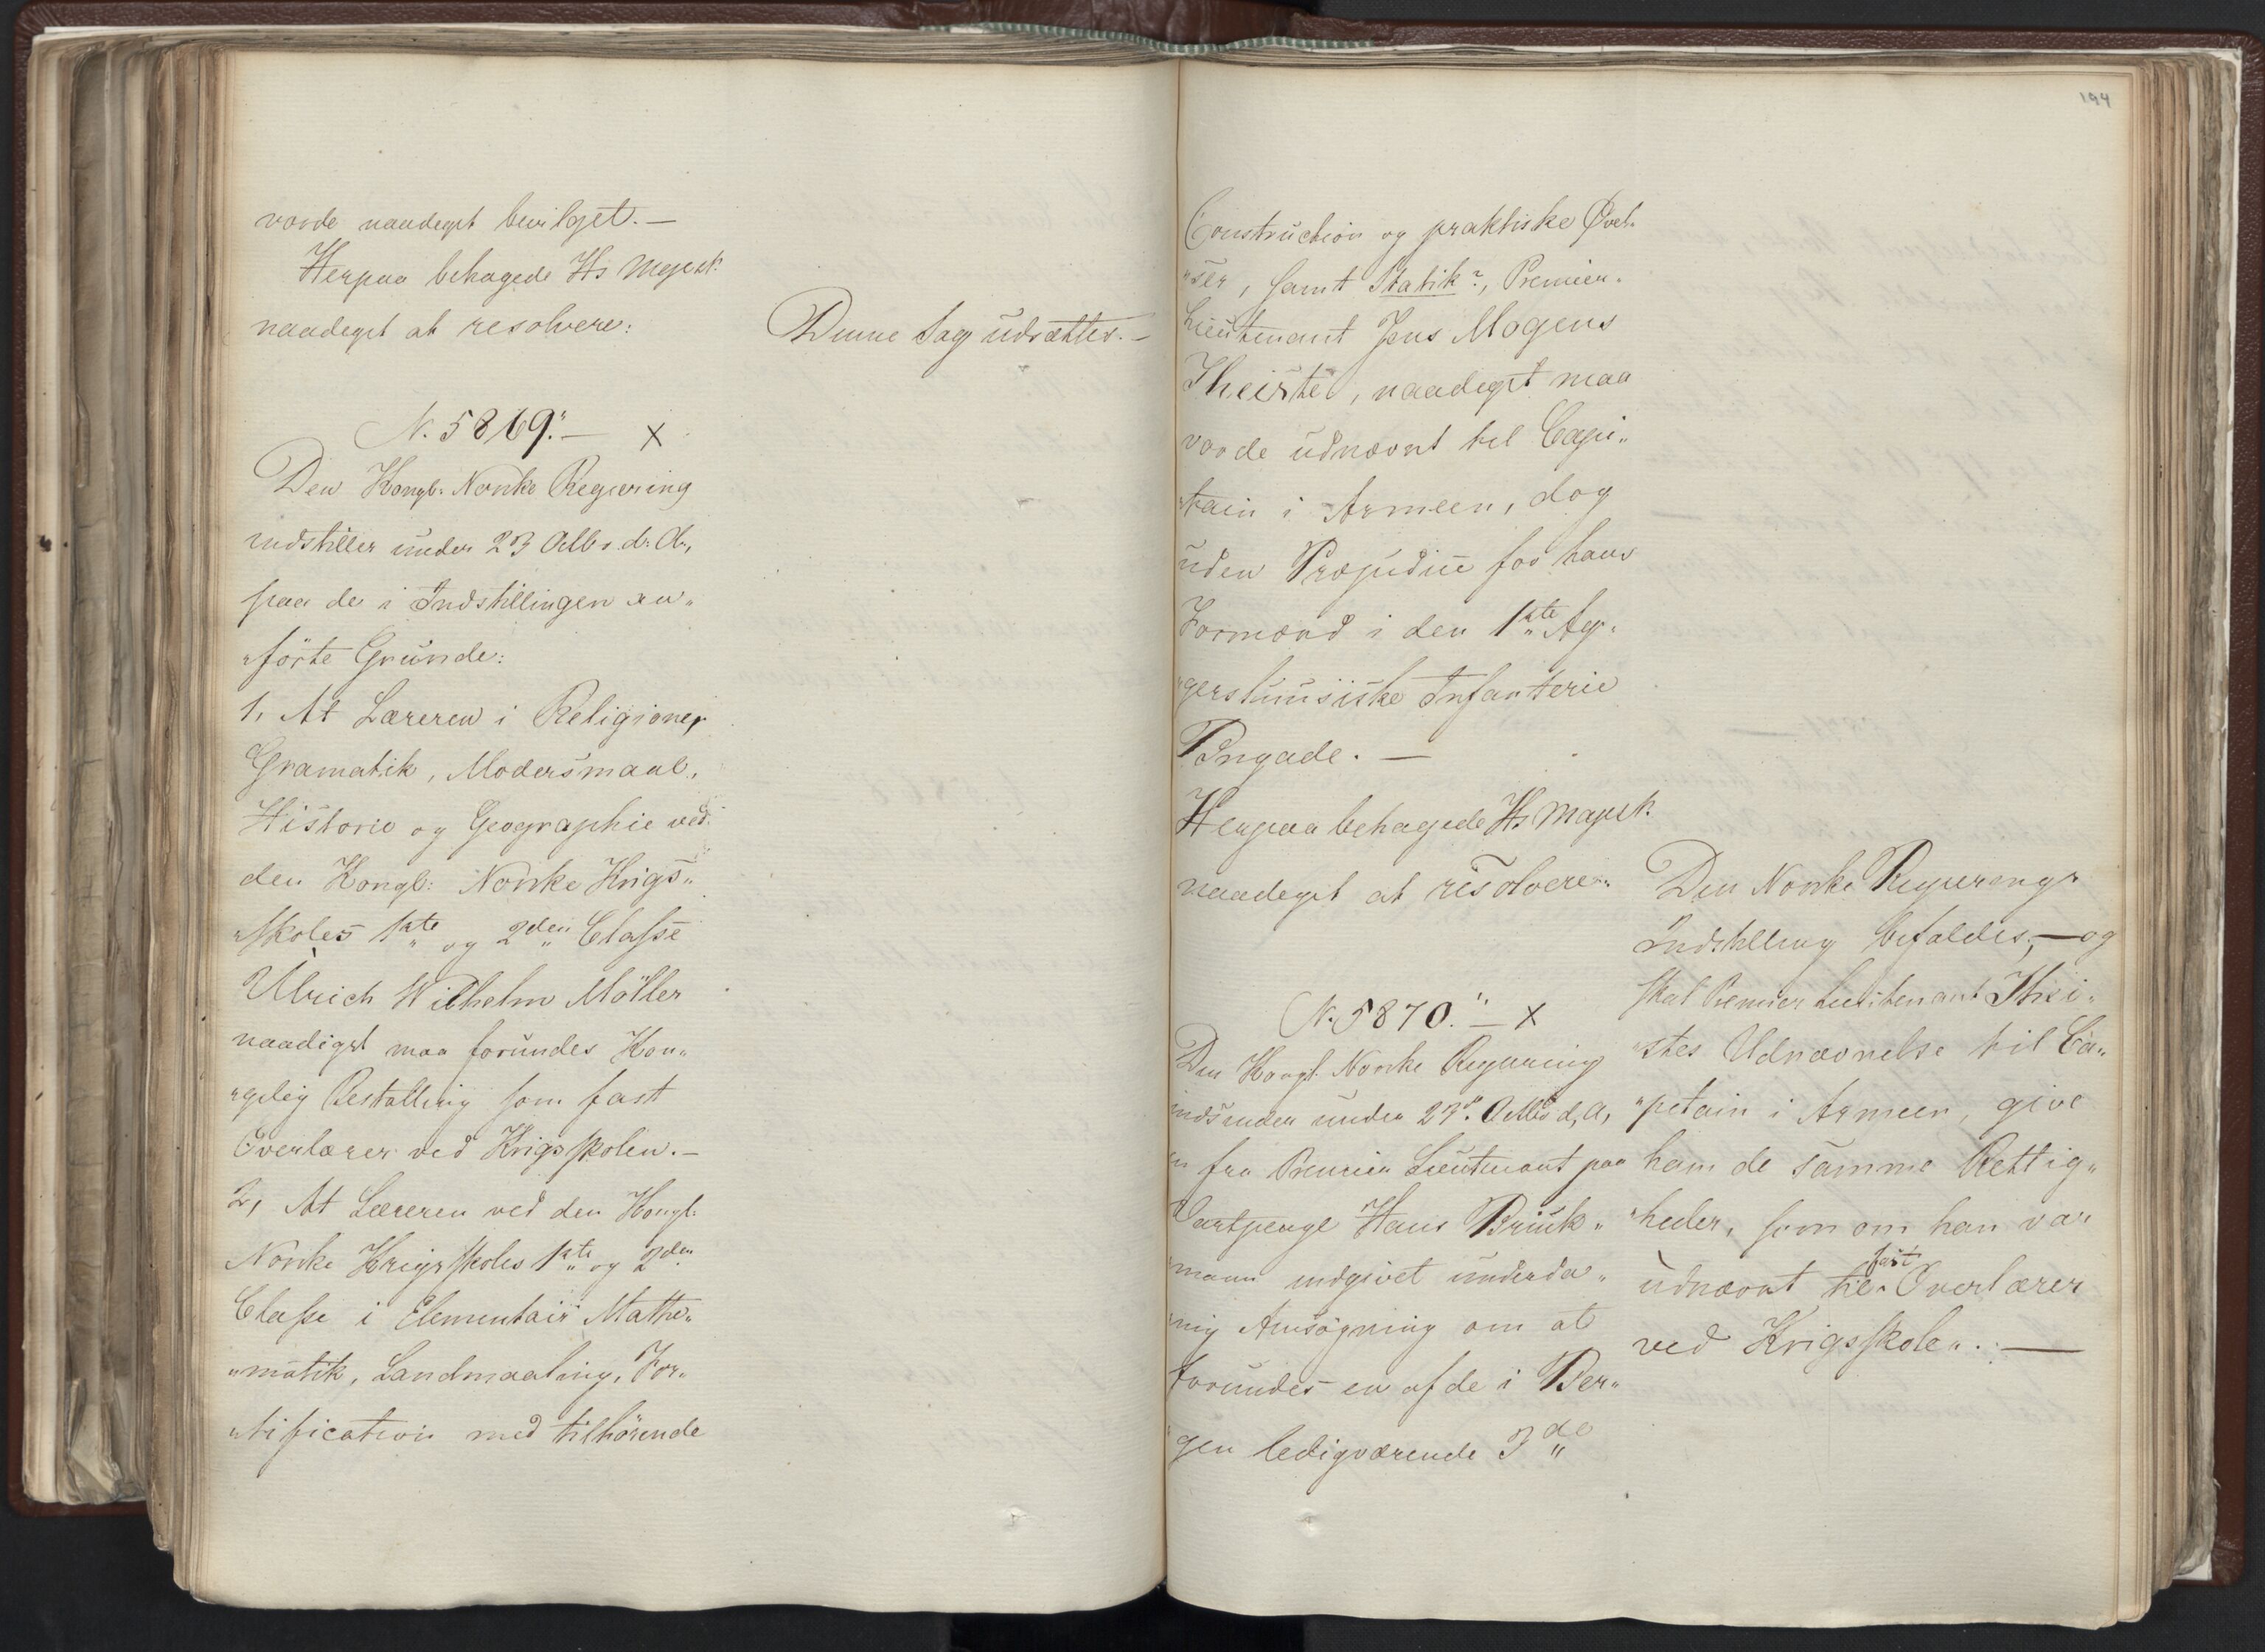 vorde naadigst bevilget. —
Herpaa behagede Hs Majest.
naadigst at resolvere:
Denne Sag udsættes. —
N. 5869." — x
Den Kongl. Norske Regiering
indstiller under 23 Octbr. d. A.,
paa de i Indstillingen an„
„förte Grunde:
1, At Læreren i Religionen,
Gramatik, Modersmaal,
Historie og Geographie ved
den Kongl: Norske Krigs„
„skoles 1ste og 2den Classe
Ulrich Wilhelm Möller
naadigst maa forundes Kon„
„gelig Bestalling som fast
Overlærer ved Krigsskolen. —
2, At Læreren ved den Kongl:
Norske Krigsskoles 1ste og 2den
Classe i Elementair Mathe„
„matik, Landmaaling, For„
„tification med tilhörende
194
Construction og praktiske Øvel„
„ser, samt Statik?, Premier„
Lieutenant Jens Mogens
Theiste, naadigst maa
vorde udnævnt til Capi„
„tain i Armeen, dog
uden Præjudice for hans
Formænd i den 1ste Ag„
„gershuusiske Infanterie
Brigade. —
Herpaa behagede Hs Majest.
naadigst at resolvere:
Den Norske Regierings
Indstilling bifaldes; — og
skal Premier Lieutenant Thei„
„stes Udnævnelse til Ca„
„pitain i Armeen, give
ham de samme Rettig„
„heder, som om han var
udnævnt til fast Overlærer
ved Krigsskolen. —
N. 5870." — x
Den Kongl. Norske Regiering
indsender under 23d. Octbr d, A,
en fra Premier Lieutenant paa
Vartpenge Hans Brink„
„mann indgivet underda„
„nig Ansögning om at
forundes en af de i Ber„
„gen ledigværende 3de